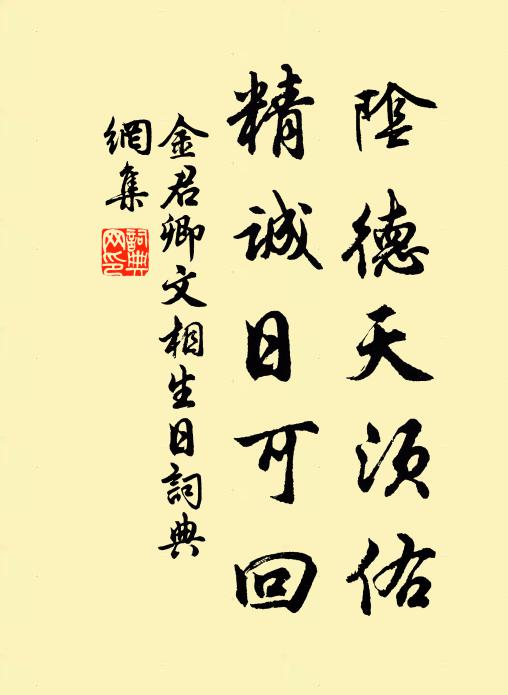 陰德天須佑
精誠日可回
金君卿文相生日詞典
網集
詞典網印